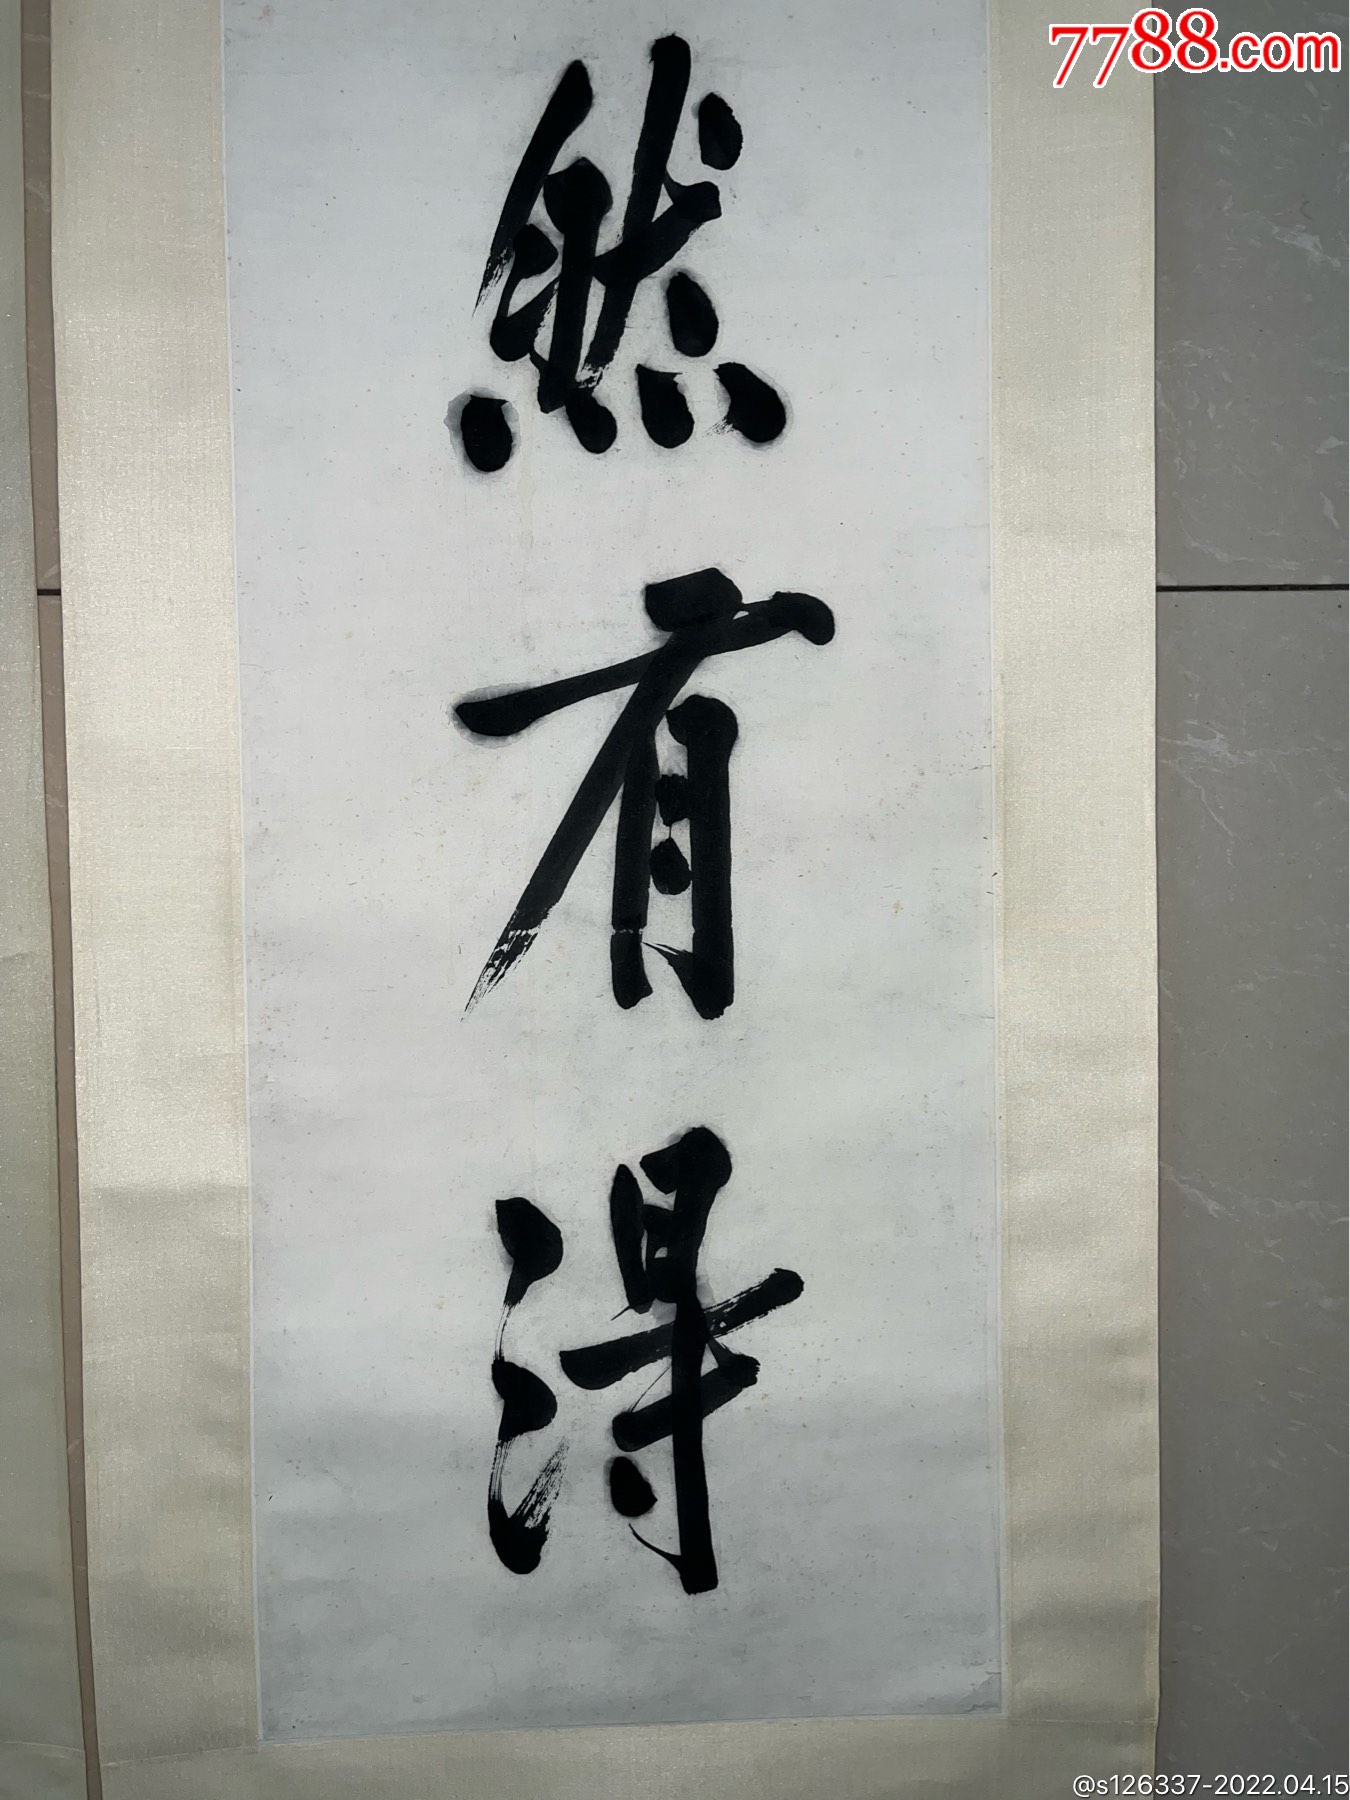 7788.com
然
有
得
@s126337-2022.04.15